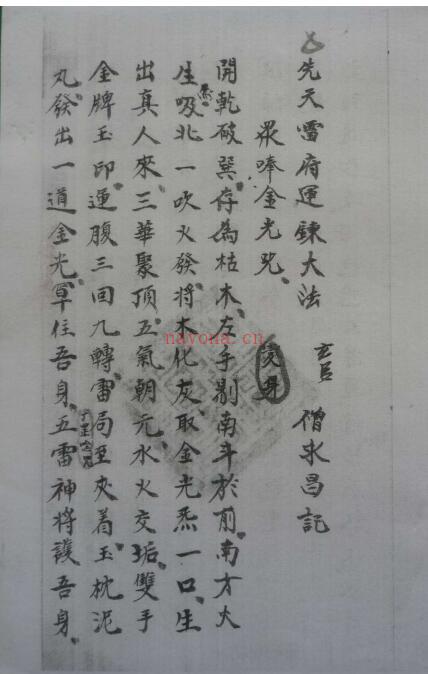 先天雷府運錬大法 僧永昌記
眾唪金光咒 变身
開乾破巽存為枯木左手剔南斗於前南方火
生吸北一吹火發將木化灰取金光炁一口生
出真人來三華聚頂五氣朝元水火交垢雙手
金牌玉印運腹三回九轉雷局至夾着玉枕泥
丸發出一道金光罩住吾身五雷神將護吾身
nayona.cn